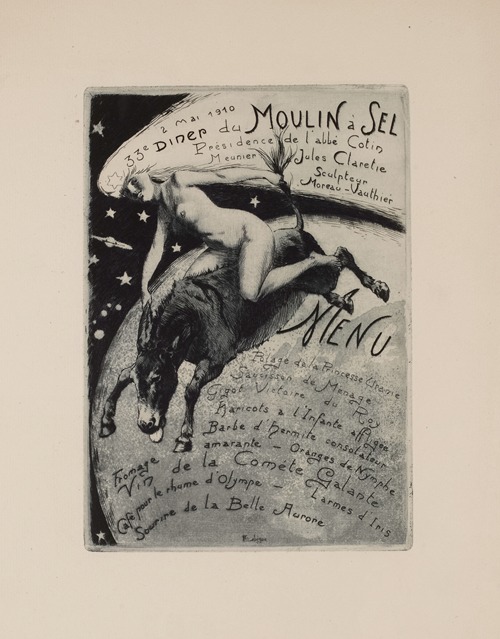 2 Mai 1910
33e Diner du Moulin à Sel
Présidence de l'abbé Cotin
Meunier Jules Claretie
Sculpteur
Moreau-Vauthier
MENU
Potage de la Princesse
Saucisson de Ménage
Gigot Victoire du Roy
Haricots à l'Infante affligée
Barbe d'hermite consolateur
amarante - Oranges de Nymphe
Fromage de la Comète Galante
Vin
Café pour le rhume d'Olympe - Larmes d'Iris
Sourire de la Belle Aurore